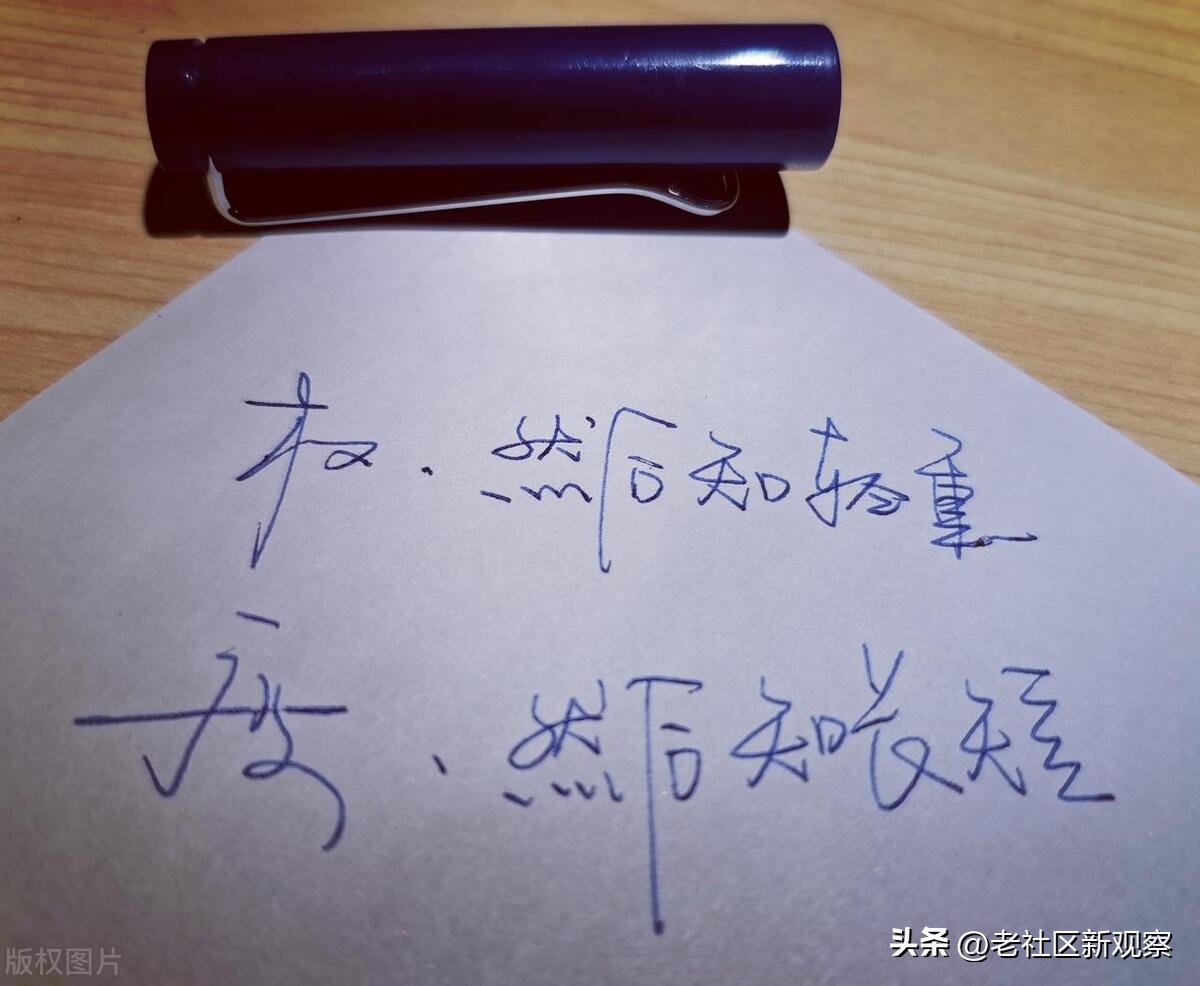 权、然后知轻重
度、然后知长短
头条 @老社区新观察
版权图片